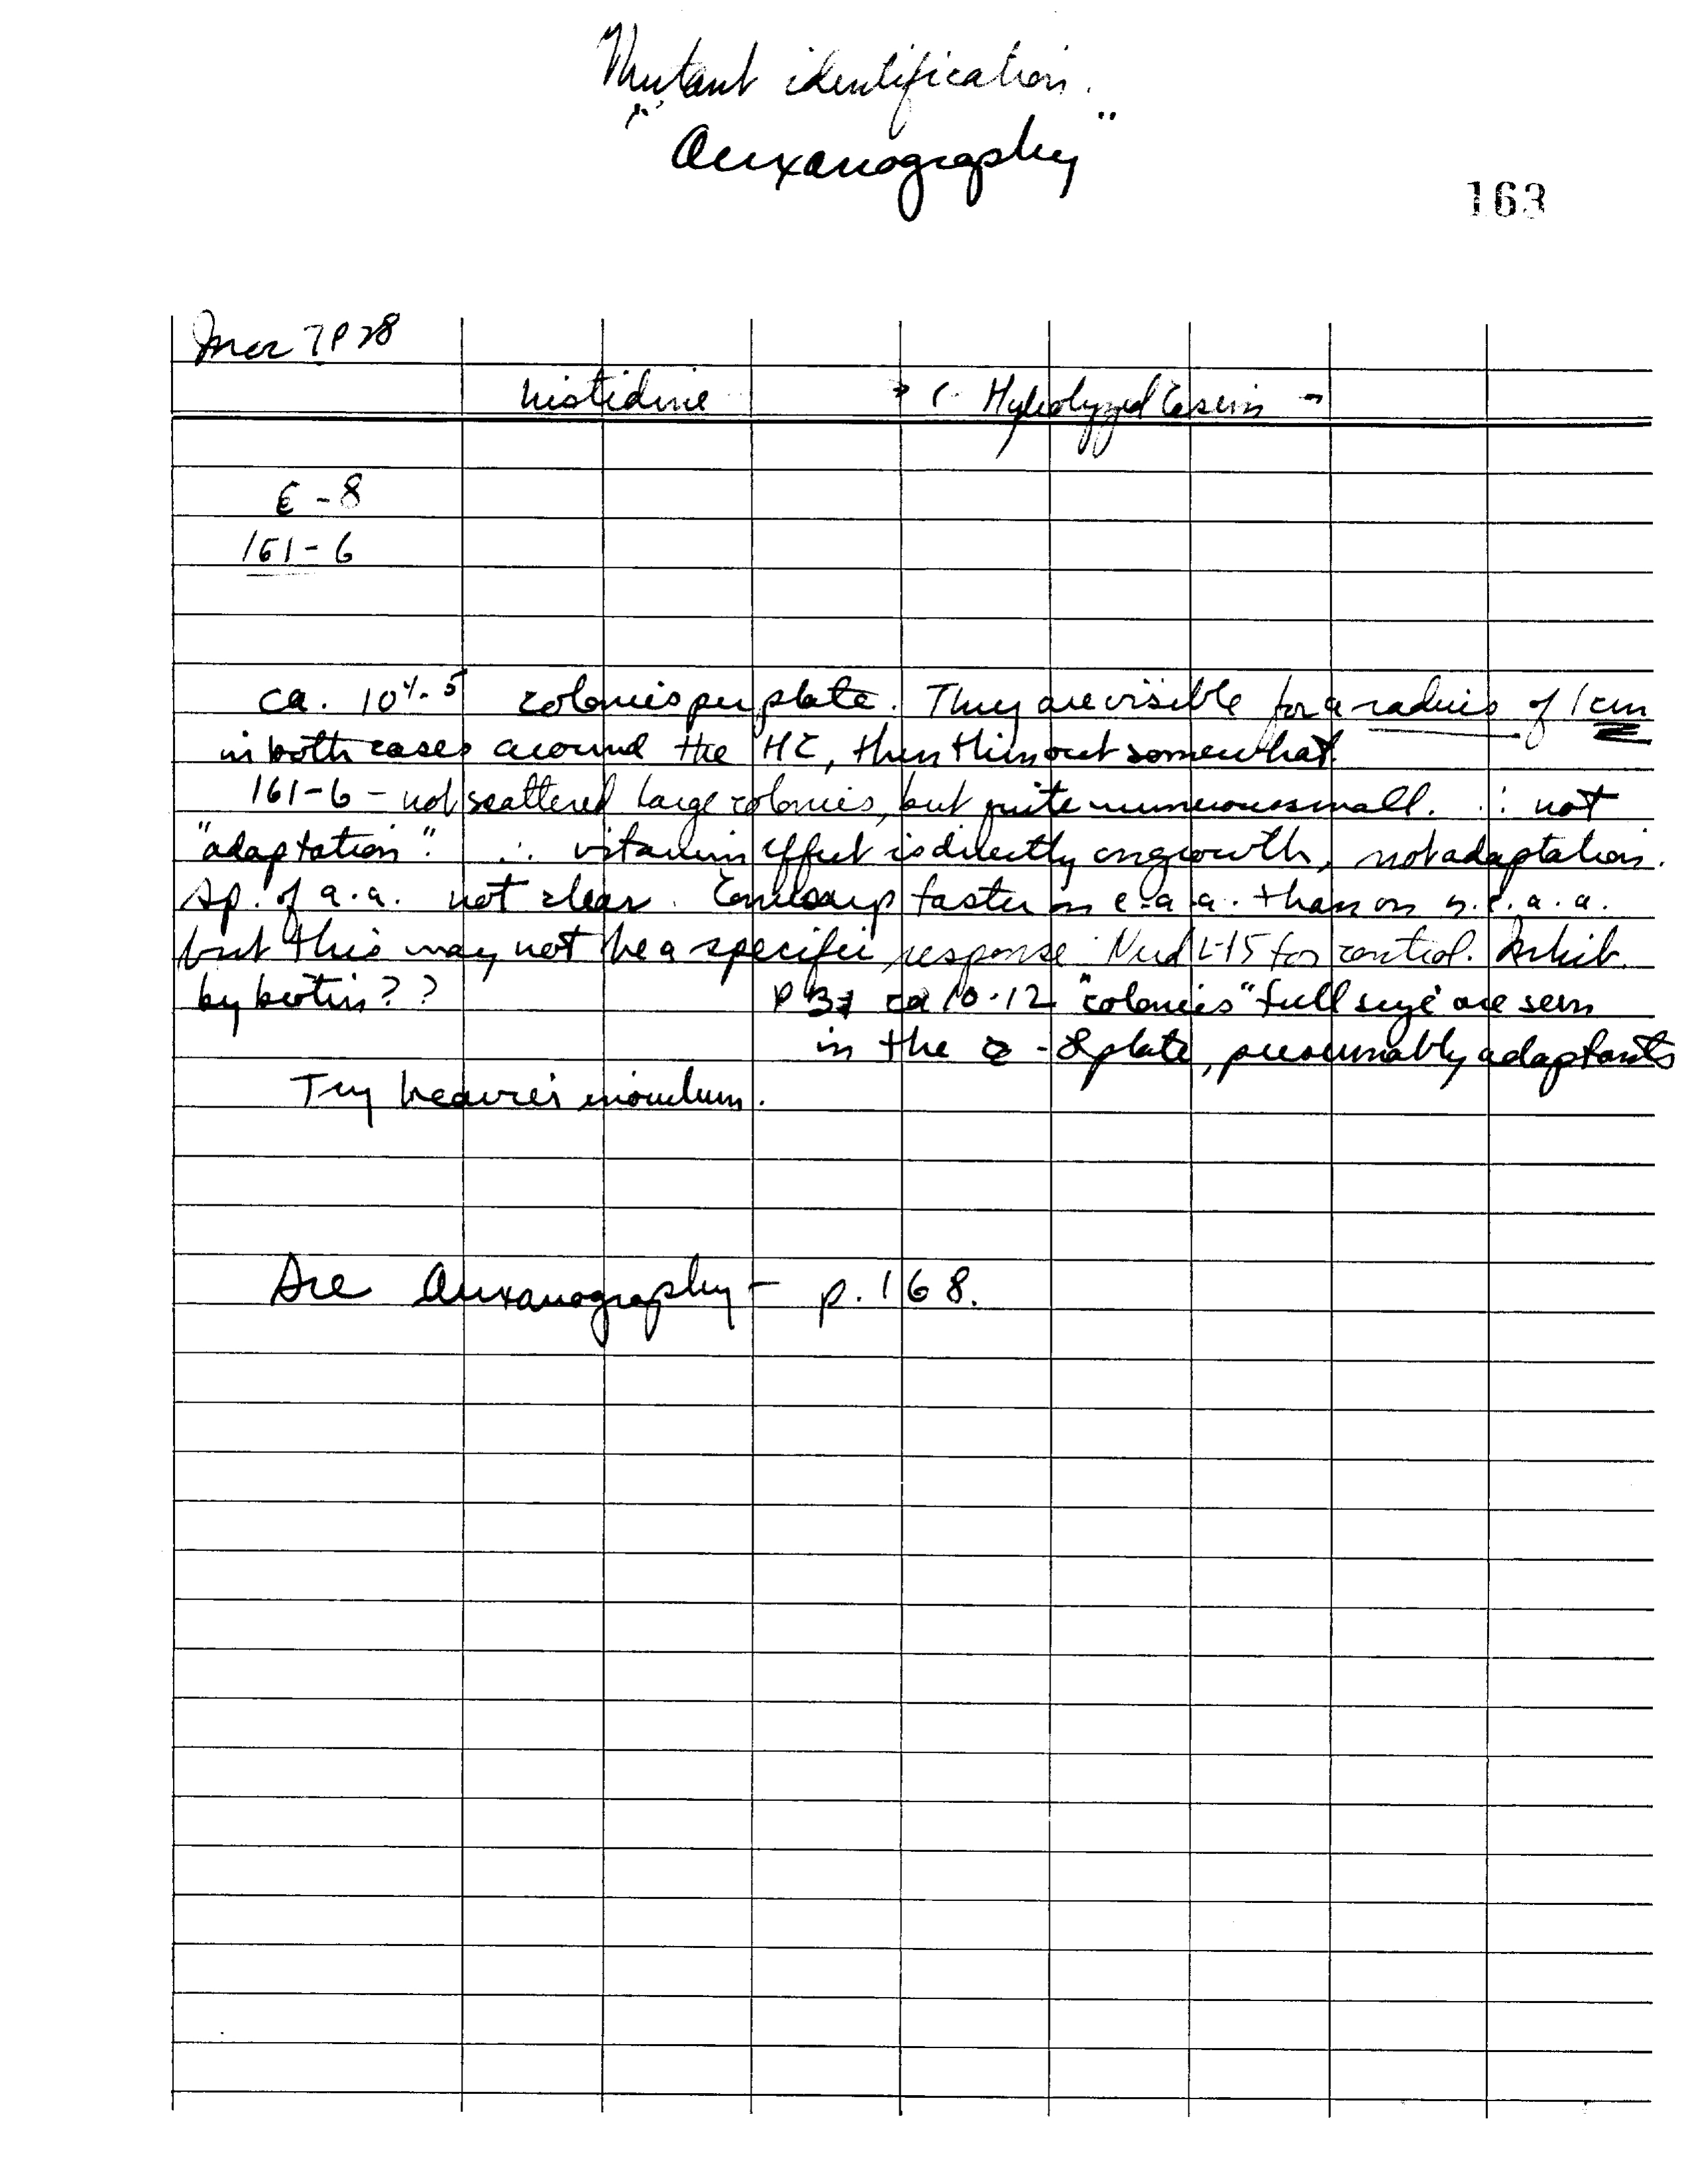 Mutant identification.
"Auxanography"
163
Mar 7P28
histidine Hydrolyzed Casein
ε-8
161-6
ca. 10 4-5 colonies per plate. They are visible for a radius of 1 cm
in both cases around the HC, then thin out somewhat.
161-6 - not scattered large colonies, but quite numerous small. ∴ not
"adaptation". ∴ vitamin effect is directly on growth, not adaptation.
Sp. of a.a. not clear. Comes up faster on e.a.a. than on n.e.a.a.
but this may not be a specific response. Need L-15 for control. Inhib.
by biotin??
ca 10-12 "colonies" full size are seen
in the -8 plate, presumably adaptants
Try heavier inoculum.
See Auxanography - p. 168.